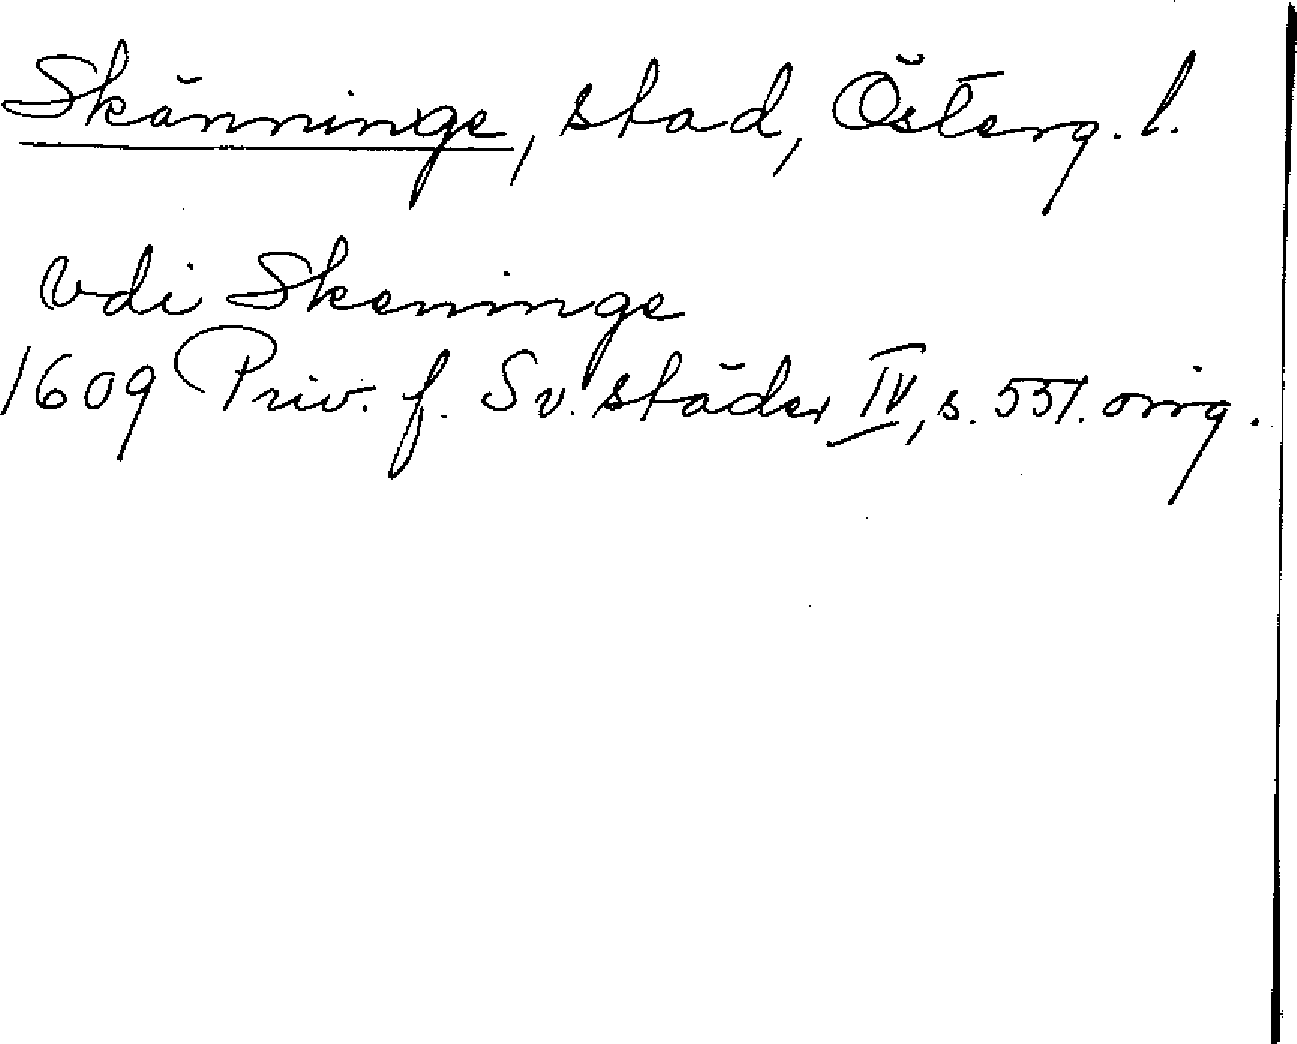 Skänninge, stad, Österg. l.
vdi Skeninge
1609 Priv. f. Sv. städer IV, s. 551. orig.